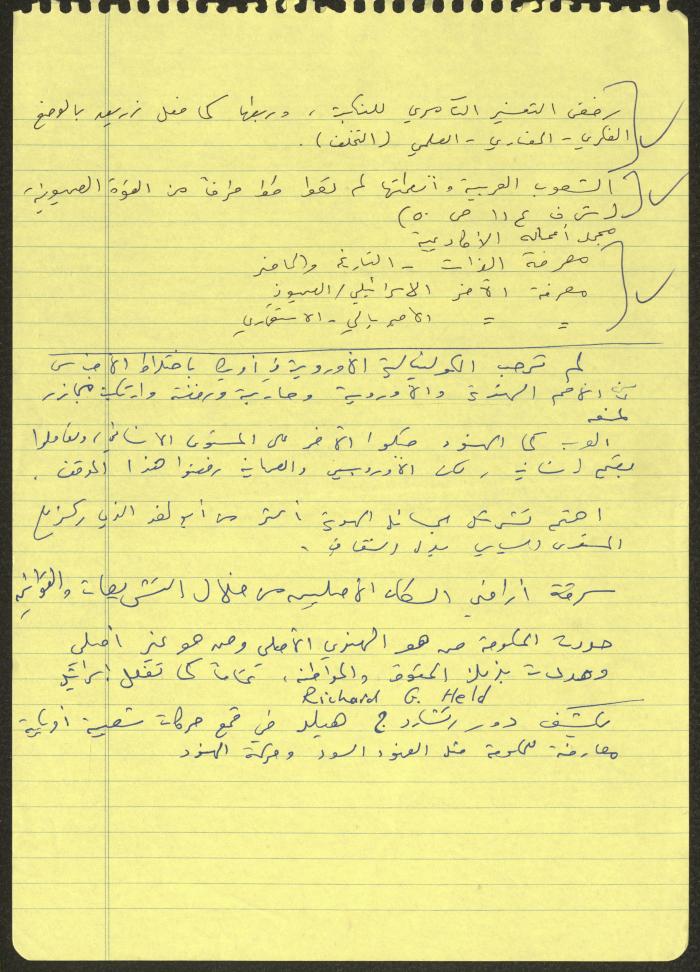 رفض التفسير التآمري للنكبة، وربطها كما فعل زريق بالوضع
الفكري - الحضاري - العلمي (التخلف).
الشعوب العربية وأنظمتها لم تقف موقفاً من القوة الصهيونية،
(ش ف ع ١١ ص ٥٠)
مجمل أعماله الأكاديمية
معرفة الذات - التاريخ والحاضر
معرفة الآخر الاسرائيلي / الصهيوني
" " الامبريالي - الاستعماري
لم ترحب الكولنيالية الأوروبية في أمريكا باختلاط الأجناس
بين الأمم الهندية والأوروبية وحاربته ورفضته وارتكبت مجازر
لمنعه
العرب كما الهنود قبلوا الآخر على المستوى الانساني، وتعاملوا
بقيم إنسانية، لكن الأوروبيين والصهاينة رفضوا هذا الموقف.
اهتم تشرتشل بمسائل الهوية أكثر من أبو لغد الذي ركز على
المستوى السياسي بدل الثقافي.
سرقة أراضي السكان الأصليين من خلال التشريعات والقوانين
حددت الحكومة من هو الهندي الأصلي ومن هو غير أصلي
وحددت بذلك الحقوق والمواطنة، تماماً كما تفعل إسرائيل
Richard G. Held
يكشف دور ريتشارد ج هيلد في قمع حركات شعبية
معارضة للحكومة مثل الفهود السود وحركة الهنود